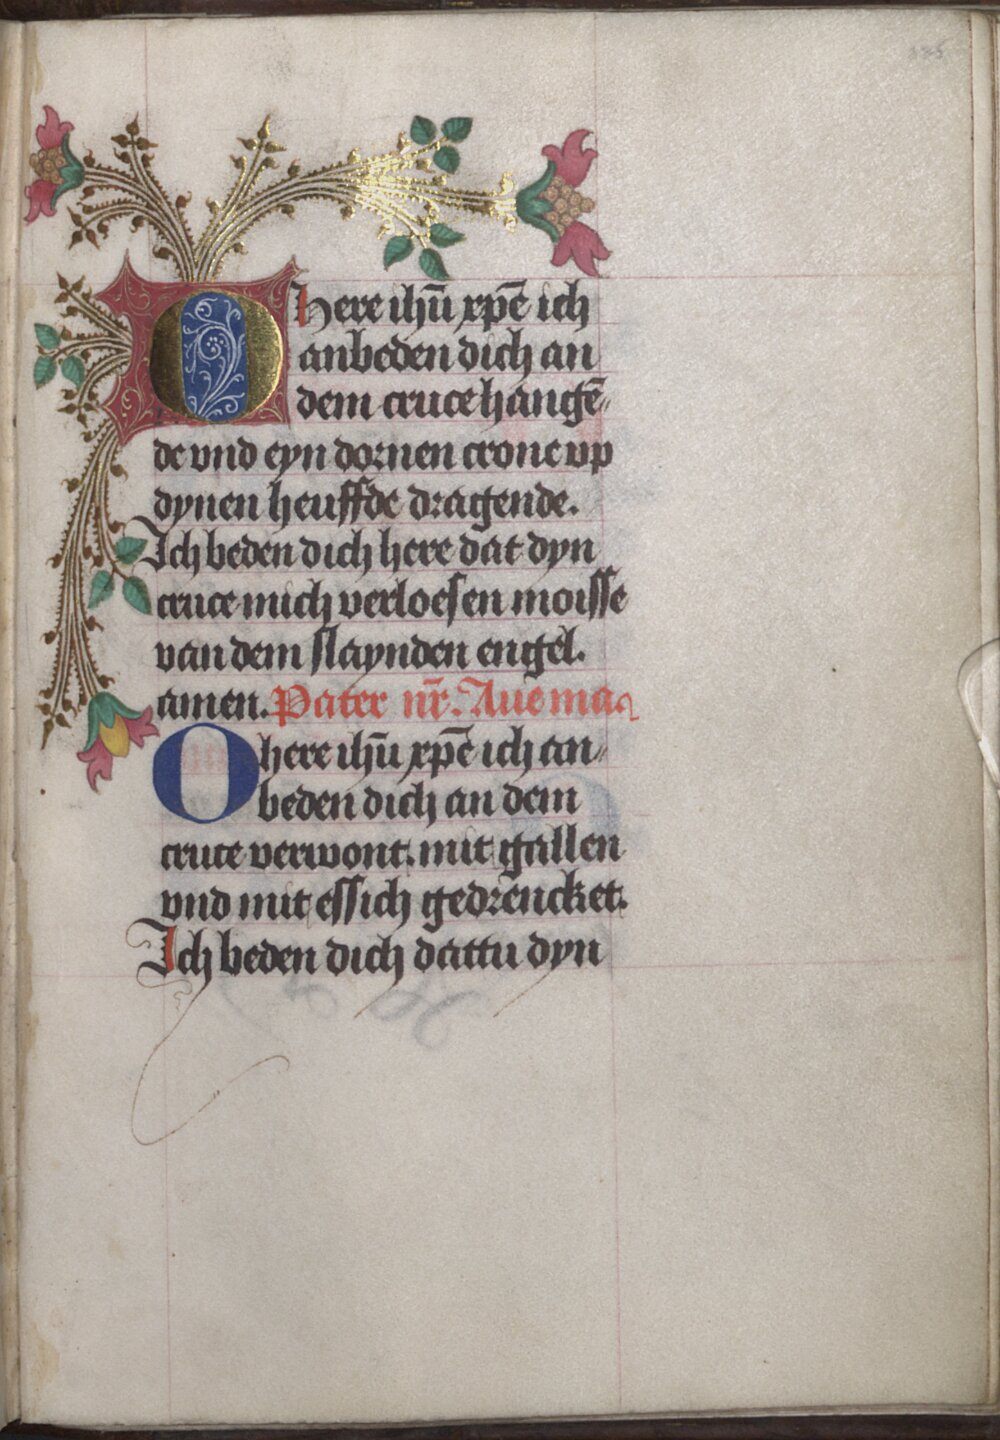 O here ihū xp̄e ich
anbeden dich an
dem cruce hangē-
de vnd eyn dornen crone vp
dynen heuffde dragende.
Ich beden dich here dat dyn
cruce mich verloesen moisse
van dem slaynden engel.
amen. Pater nr̄. Aue ma
O here ihū xp̄e ich an-
beden dich an dem
cruce verwont. mit gallen
vnd mit essich gedrencket.
Ich beden dich dattu dyn